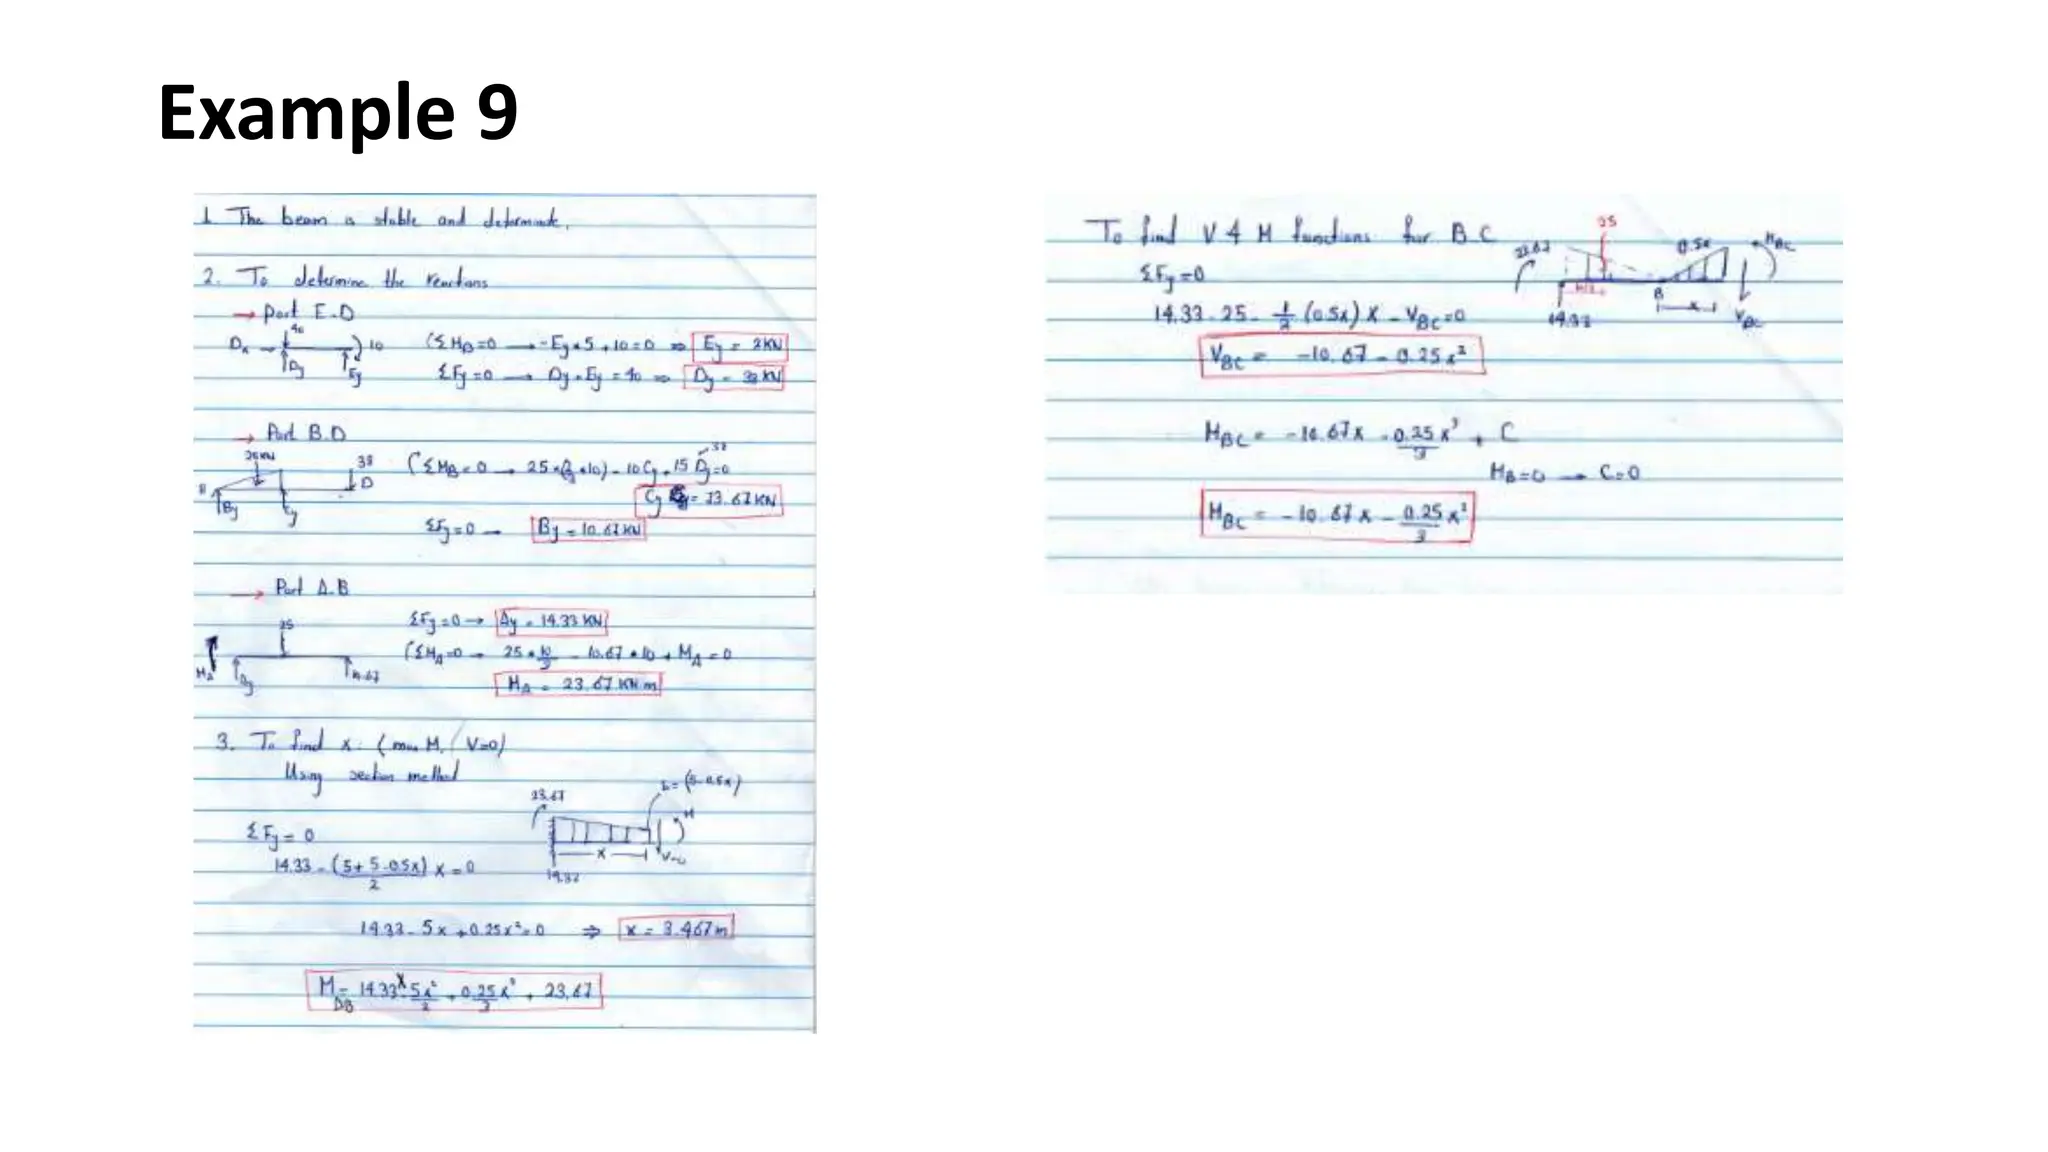 Example 9
1. The beam is stable and determinate.
2. To determine the reactions
→ Part E.D
40
Dx 10 (ΣMD=0 → -Ey*5+10=0 ⇒ Ey = 2KN
Dy Ey ΣFy=0 → Dy+Ey=40 ⇒ Dy = 38 KN
→ Part B.D
25KN 38 38
B D (ΣMB=0 → 25*(2/3*10)-10Cy+15Dy=0
By Cy Cy = 73.67KN
ΣFy=0 → By = 10.67KN
→ Part A.B
25 ΣFy=0 → Ay = 14.33 KN
(ΣMA=0 → 25*10/3 - 10.67*10 + MA = 0
MA Ay 10.67 MA = 23.67 KN m
3. To find x: (max M / V=0)
Using section method
23.67 b=(5-0.5x)
M
ΣFy=0
x V=0
14.33 - (5+5-0.5x)/2 x = 0 14.33
14.33-5x+0.25x²=0 ⇒ x = 3.467m
M = 14.33x 5x²/2 + 0.25x³/3 + 23.67
To find V & M functions for B C
25
23.67 0.5x MBC
ΣFy=0
14.33-25-1/2(0.5x)x-VBC=0
B x
14.33 VBC
VBC = -10.67-0.25x²
MBC = -10.67x-0.25x³/3 + C
MB=0 → C=0
MBC = -10.67x-0.25x³/3